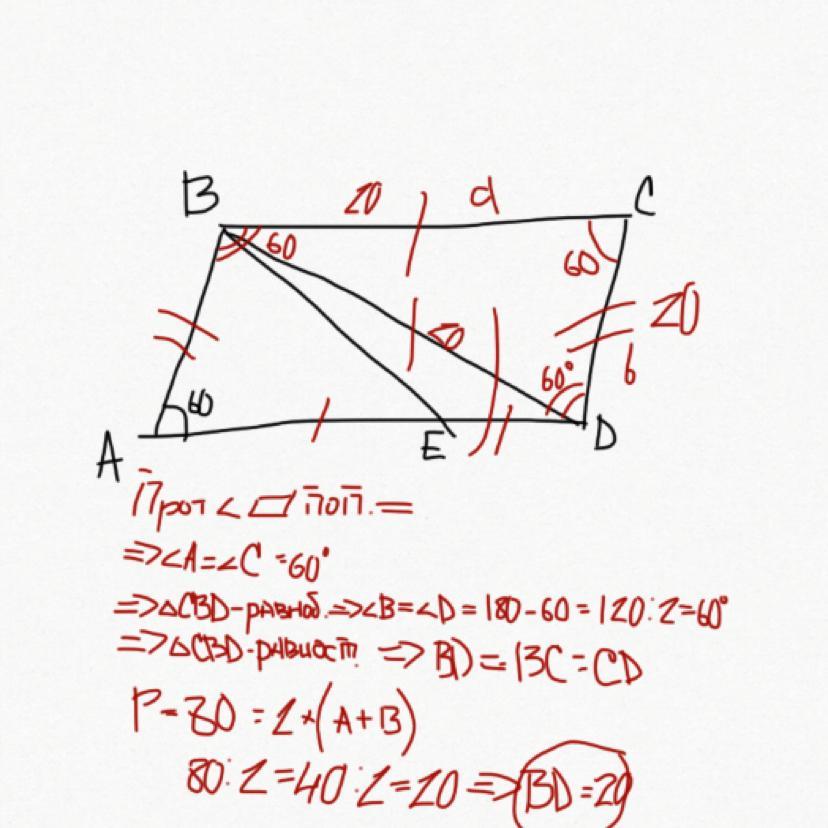 B 20 d C
60 60
20
60° b
60
A E D
Прот < ▱ поп. =
=> ∠A = ∠C = 60°
=> △CBD - равноб. => ∠B = ∠D = 180 - 60 = 120 : 2 = 60°
=> △CBD - равност => BD = BC = CD
P = 80 = 2 × (A + B)
80 : 2 = 40 : 2 = 20 => BD = 20